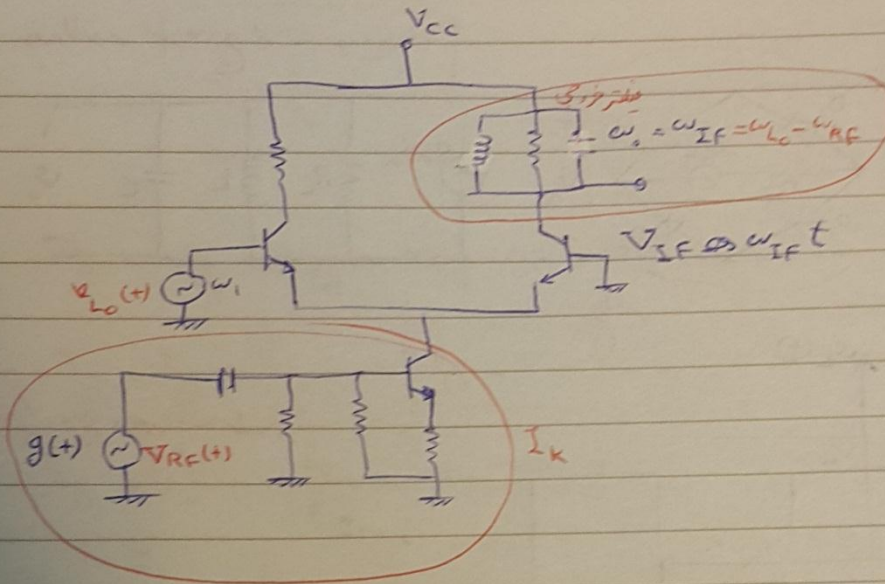 V_CC
فیلتر خروجی
ω₀ = ω_IF = ω_LO - ω_RF
V_IF cos ω_IF t
v_LO(t) ω₁
g(t) V_RF(t)
I_K